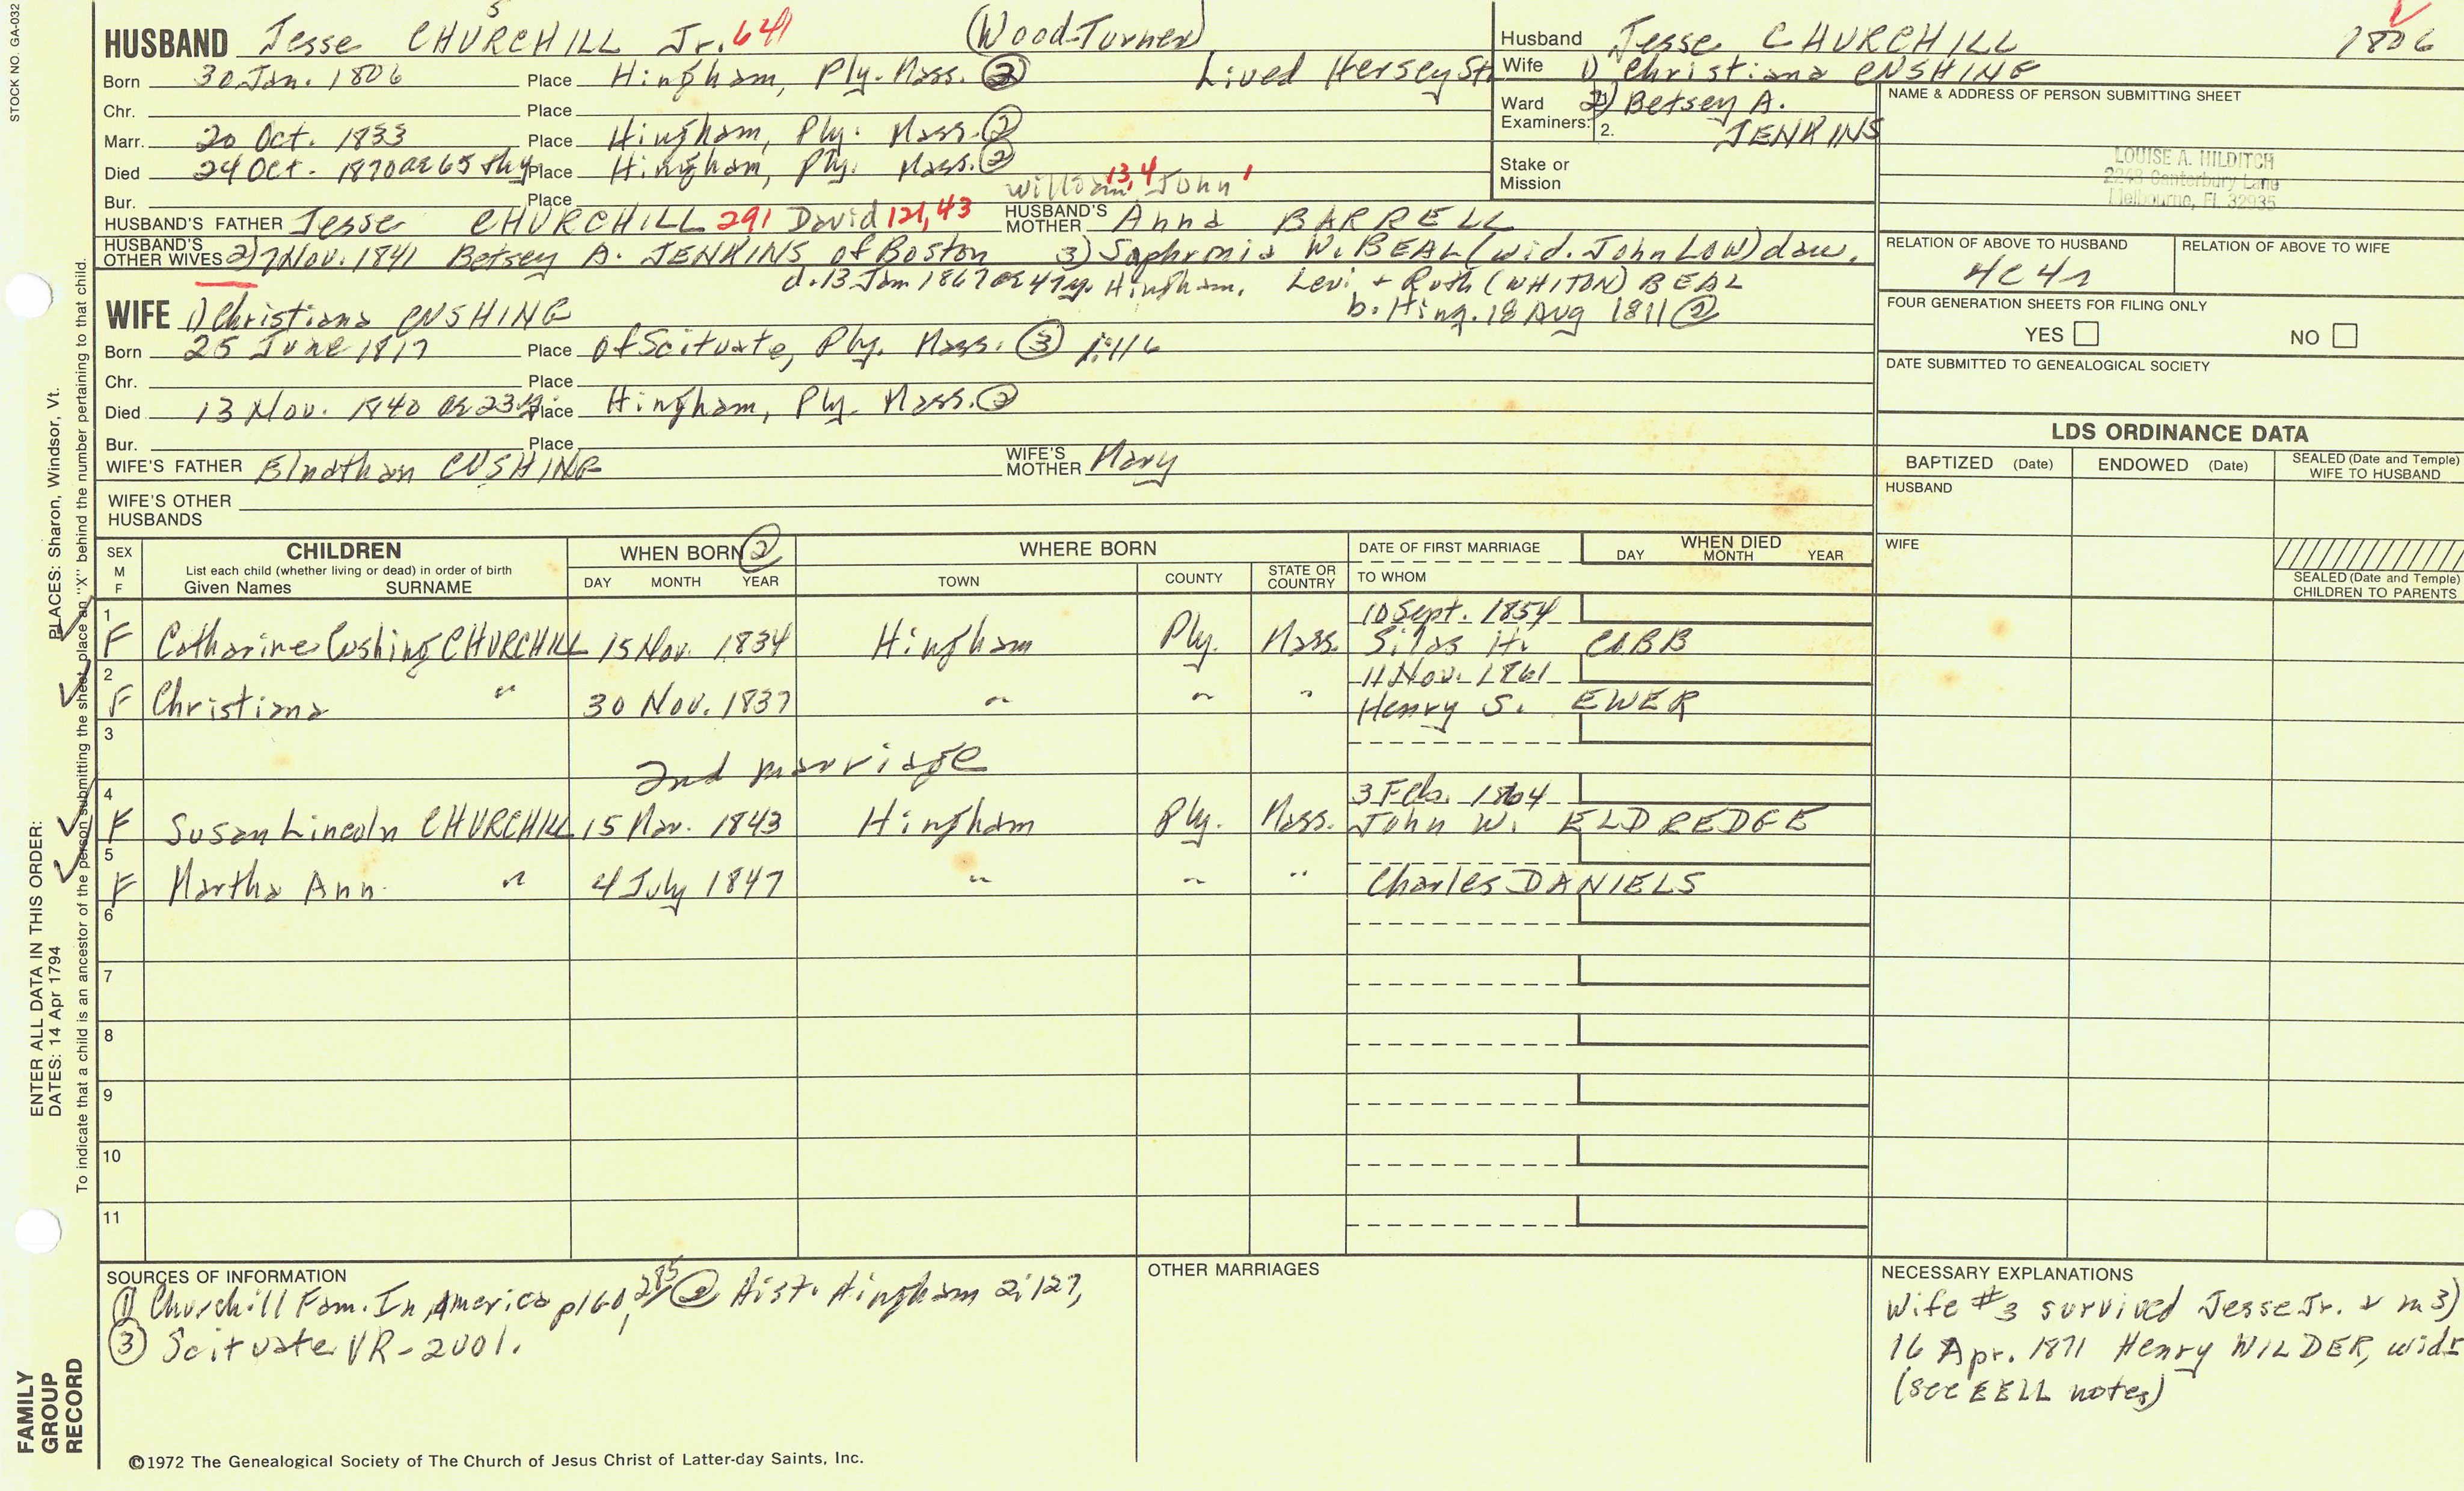 STOCK NO. GA-032
5
HUSBAND Jesse CHURCHILL Jr. 641 (Wood-Turner)
Born 30 Jan. 1806 Place Hingham, Ply. Mass. ② Lived Hersey St.
Chr. Place
Marr. 20 Oct. 1833 Place Hingham, Ply. Mass. ②
Died 24 Oct. 1870 ae 65 Place Hingham, Ply. Mass. ②
William 13,4 John 1
Bur. Place
HUSBAND'S FATHER Jesse CHURCHILL 291 David 121,43 HUSBAND'S MOTHER Anna BARRELL
HUSBAND'S OTHER WIVES 2) 7 Nov. 1841 Betsey A. JENKINS of Boston 3) Saphronia W. BEAL (wid. John LOW) dau.
d. 13 Jan 1867 ae 47y. Hingham. Levi + Ruth (WHITON) BEAL
b. Hing. 18 Aug 1811 ②
WIFE 1) Christiana CUSHING
Born 25 June 1817 Place of Scituate, Ply. Mass. ③ 1:116
Chr. Place
Died 13 Nov. 1840 ae 23y. Place Hingham, Ply. Mass. ②
Bur. Place
WIFE'S FATHER Elnathan CUSHING WIFE'S MOTHER Mary
WIFE'S OTHER HUSBANDS
Husband Jesse CHURCHILL 1806
Wife 1) Christiana CUSHING
Ward Examiners: 2) Betsey A.
2. JENKINS
Stake or Mission
NAME & ADDRESS OF PERSON SUBMITTING SHEET
LOUISE A. HILDITCH
2243 Canterbury Lane
Melbourne, Fl. 32935
RELATION OF ABOVE TO HUSBAND RELATION OF ABOVE TO WIFE
4C4r
FOUR GENERATION SHEETS FOR FILING ONLY
YES NO
DATE SUBMITTED TO GENEALOGICAL SOCIETY
LDS ORDINANCE DATA
BAPTIZED (Date) ENDOWED (Date) SEALED (Date and Temple) WIFE TO HUSBAND
HUSBAND
WIFE
SEALED (Date and Temple) CHILDREN TO PARENTS
SEX M F CHILDREN WHEN BORN ② WHERE BORN DATE OF FIRST MARRIAGE WHEN DIED
List each child (whether living or dead) in order of birth
Given Names SURNAME DAY MONTH YEAR TOWN COUNTY STATE OR COUNTRY TO WHOM DAY MONTH YEAR
1 10 Sept. 1854
F Catharine Cushing CHURCHILL 15 Nov. 1834 Hingham Ply. Mass. Silas H. COBB
2 11 Nov. 1861
F Christiana " 30 Nov. 1837 " " " Henry S. EWER
3
2nd marriage
4 3 Feb. 1864
F Susan Lincoln CHURCHILL 15 Mar. 1843 Hingham Ply. Mass. John W. ELDREDGE
5
F Martha Ann " 4 July 1847 " " " Charles DANIELS
6
7
8
9
10
11
SOURCES OF INFORMATION
① Churchill Fam. In America p160, 285 ② Hist. Hingham 2:127,
③ Scituate VR-2001.
OTHER MARRIAGES
NECESSARY EXPLANATIONS
Wife #3 survived Jesse Jr. & m 3)
16 Apr. 1871 Henry WILDER, widr
(see EELL notes)
©1972 The Genealogical Society of The Church of Jesus Christ of Latter-day Saints, Inc.
FAMILY GROUP RECORD
ENTER ALL DATA IN THIS ORDER:
DATES: 14 Apr 1794 PLACES: Sharon, Windsor, Vt.
To indicate that a child is an ancestor of the person submitting the sheet, place an "X" behind the number pertaining to that child.